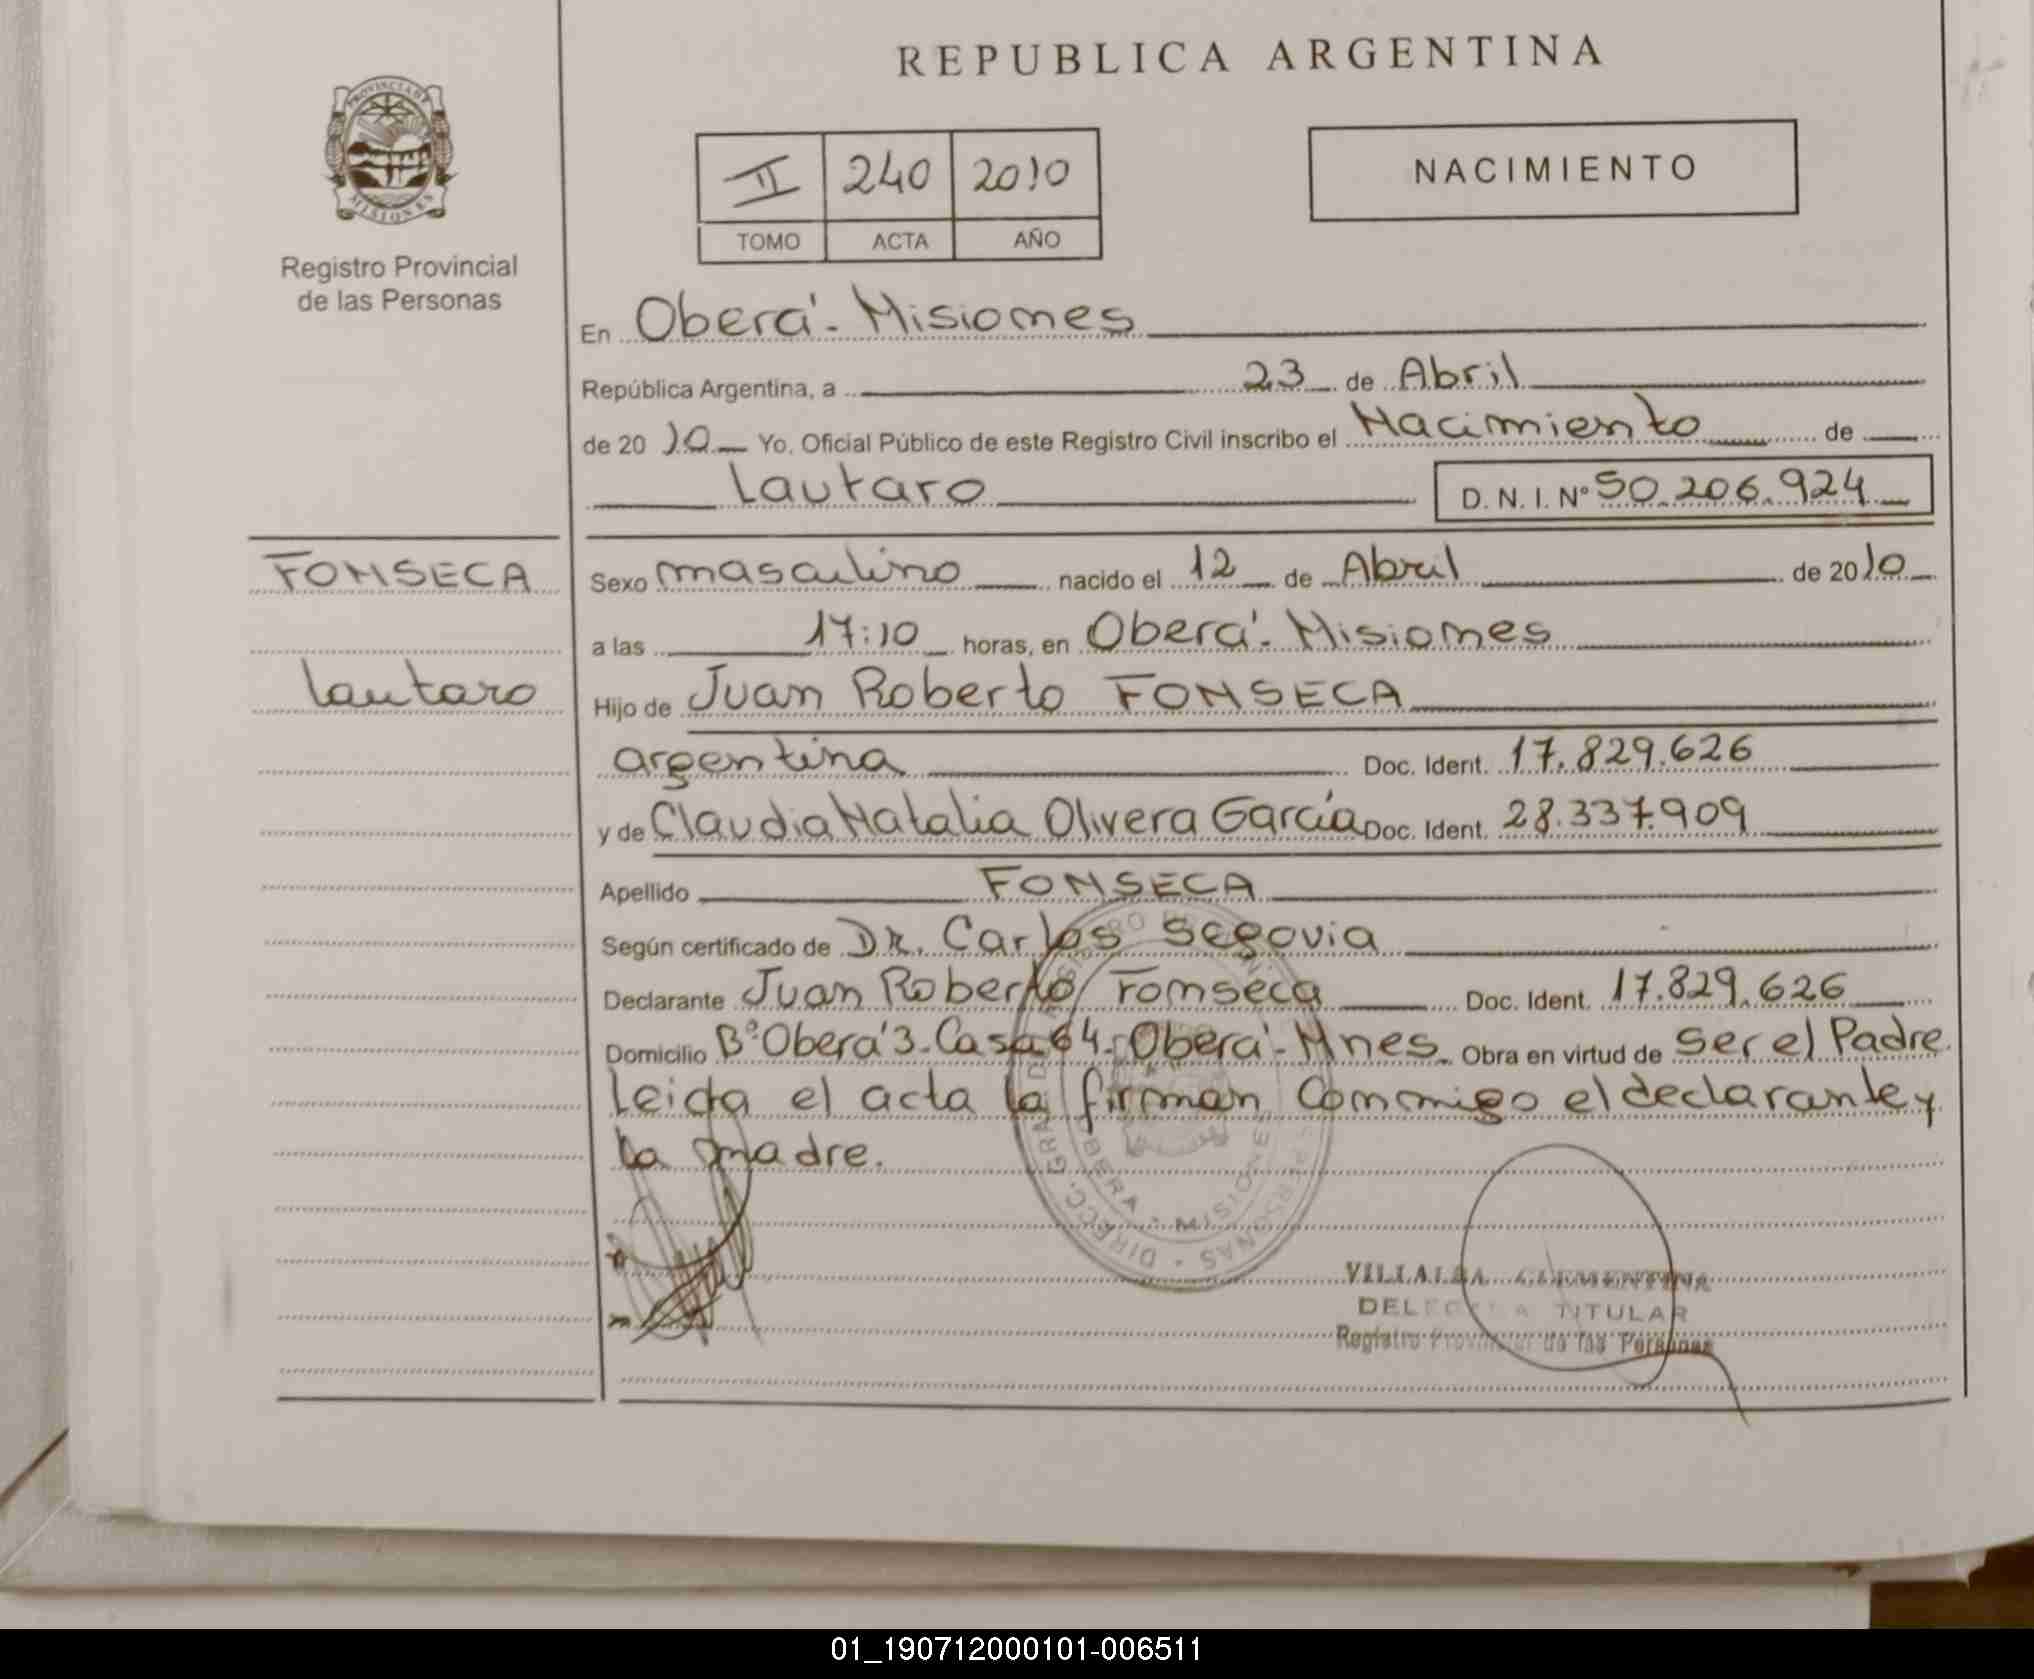 REPUBLICA ARGENTINA
PROVINCIA DE
MISIONES
Registro Provincial
de las Personas
II 240 2010
TOMO ACTA AÑO
NACIMIENTO
En Oberá - Misiones
República Argentina, a 23 de Abril
de 20 10 Yo, Oficial Público de este Registro Civil inscribo el Nacimiento de
Lautaro D. N. I. Nº 50.206.924
FONSECA
Lautaro
Sexo masculino nacido el 12 de Abril de 2010
a las 17:10 horas, en Oberá - Misiones
Hijo de Juan Roberto FONSECA
argentina Doc. Ident. 17.829.626
y de Claudia Natalia Olivera García Doc. Ident. 28.337.909
Apellido FONSECA
Según certificado de DR. Carlos Segovia
Declarante Juan Roberto Fonseca Doc. Ident. 17.829.626
Domicilio Bº Oberá 3 - Casa 64 - Oberá - Mnes. Obra en virtud de ser el Padre.
Leida el acta la firman conmigo el declarante y
la madre.
DIRECC. GRAL. DE REGISTRO PROVINCIAL PERSONAS
OBERA - MISIONES
VILLALBA CLEMENTINA
DELEGADA TITULAR
Registro Provincial de las Personas
01_190712000101-006511